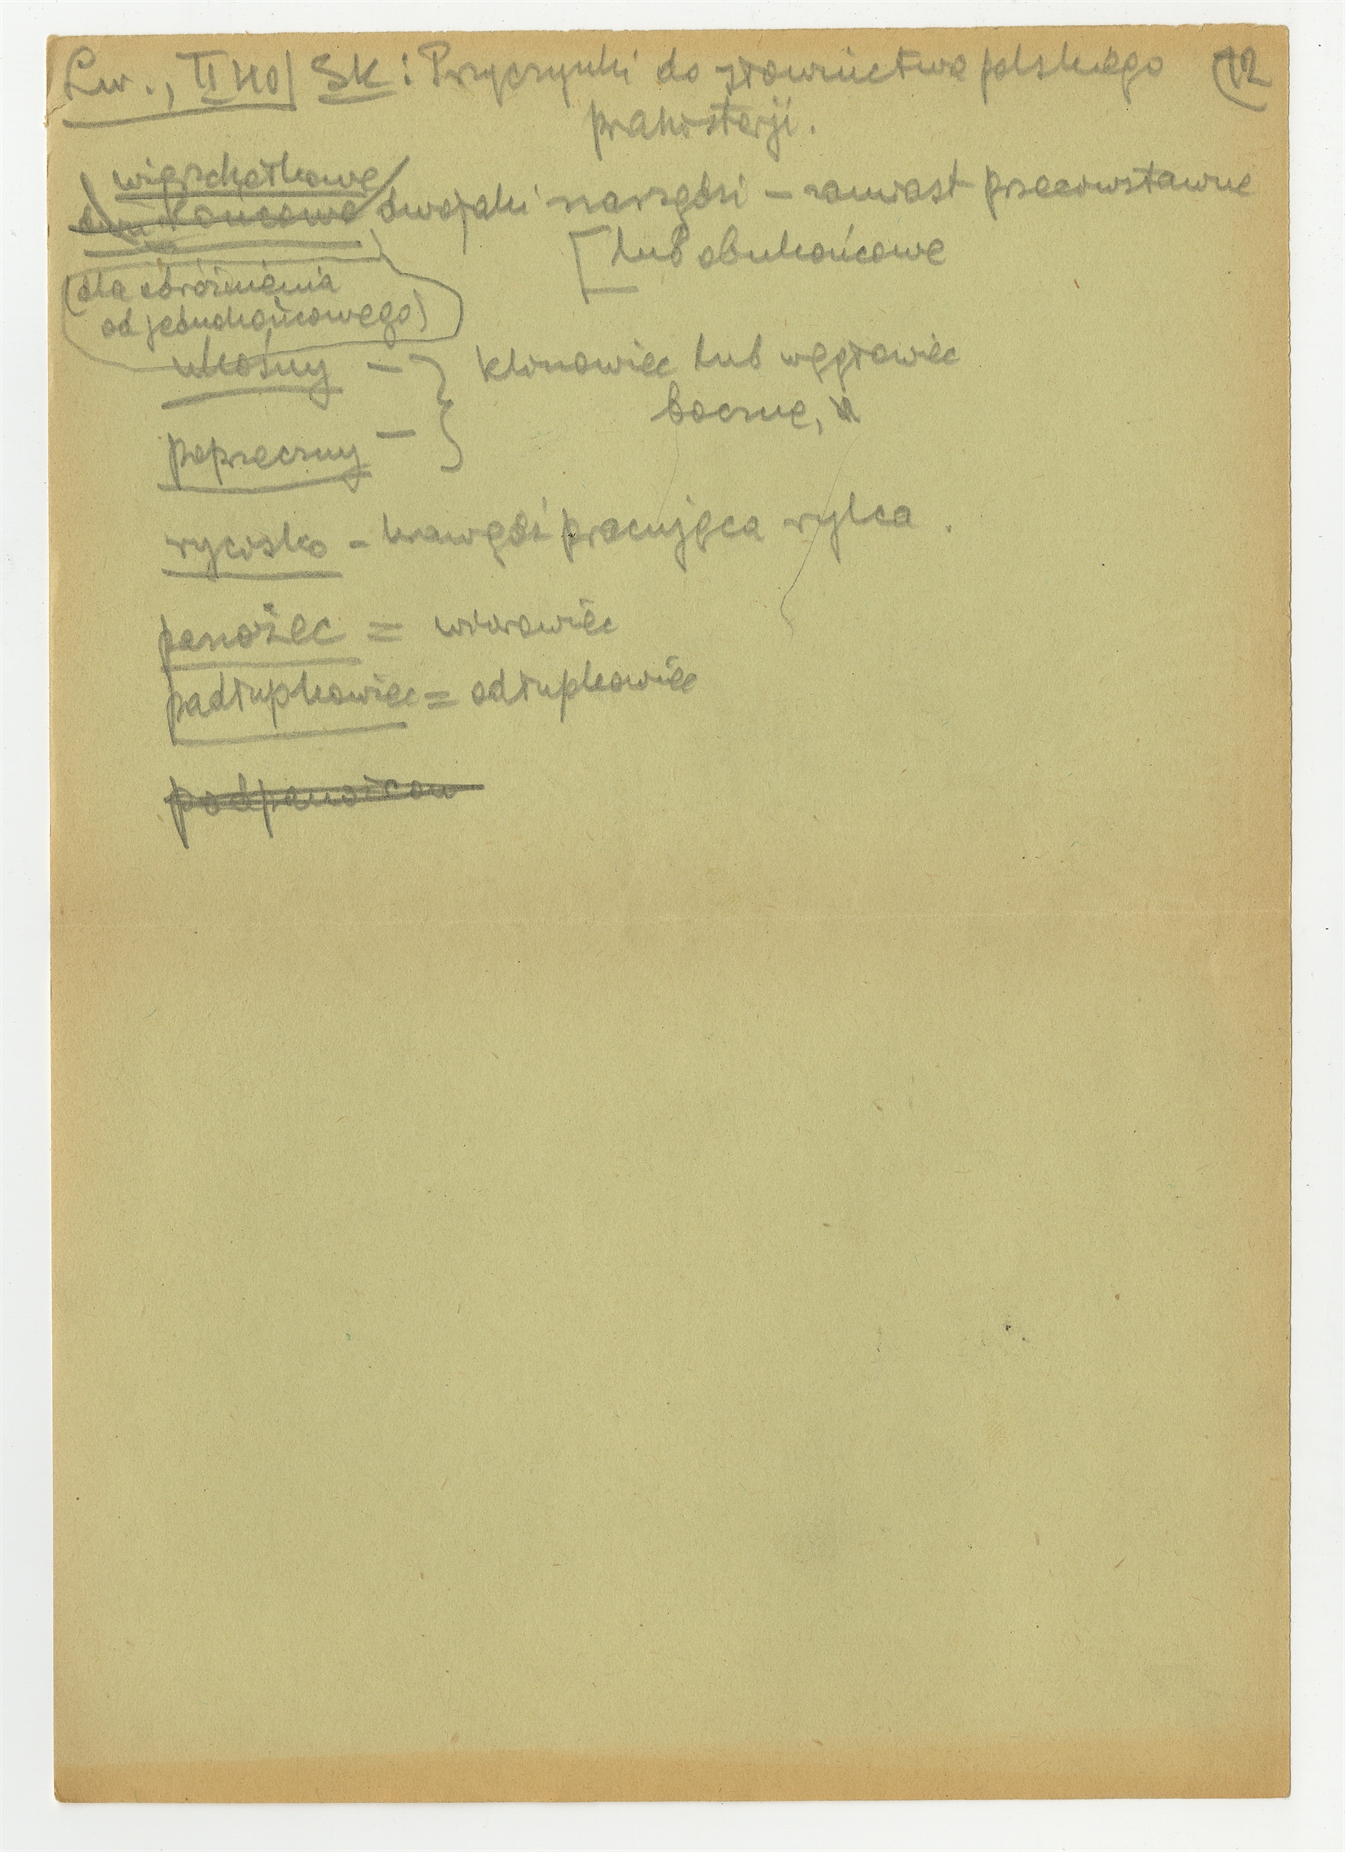 Lw., II 40/ SK: Przyczynki do słownictwa polskiego 12
prahistorji.
wierzchołkowe
końcowe dwojaki narzędzi – zamiast przeciwstawne
[lub obukońcowe
(dla odróżnienia
od jednokońcowego)
ukośny – } klinowiec lub węgłowiec
boczne,
poprzeczny –
rycisko – krawędź pracująca rylca.
panożec = wiórowiec
padłupkowiec = odłupkowiec